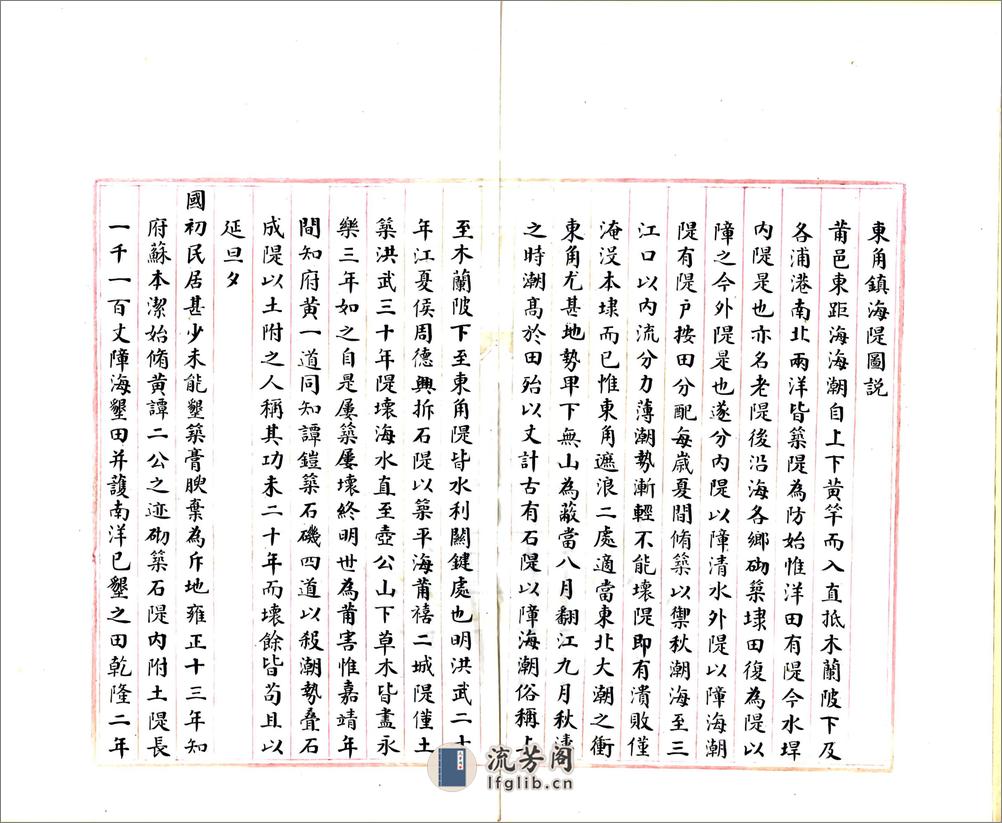 東角鎮海隄圖説
莆邑東距海海潮自上下黄竿而入直抵木蘭陂下及
各浦港南北兩洋皆築隄為防始惟洋田有隄今水垾
内隄是也亦名老隄後沿海各鄉砌築埭田復為隄以
障之今外隄是也遂分内隄以障清水外隄以障海潮
隄有隄户按田分配每歲夏間脩築以禦秋潮海至三
江口以内流分力薄潮勢漸輕不能壞隄即有潰敗僅
淹没本埭而已惟東角遮浪二處適當東北大潮之衝
東角尤甚地勢甲下無山為蔽當八月翻江九月秋濤
之時潮髙於田殆以丈計古有石隄以障海潮俗稱上
至木蘭陂下至東角隄皆水利關鍵處也明洪武二十
年江夏侯周德興拆石隄以築平海莆禧二城隄僅土
築洪武三十年隄壞海水直至壺公山下草木皆盡永
樂三年如之自是屢築屢壞終明世為莆害惟嘉靖年
間知府黄一道同知譚鎧築石磯四道以殺潮勢叠石
成隄以土附之人稱其功未二十年而壞餘皆苟且以
延旦夕
國初民居甚少未能墾築膏腴棄為斥地雍正十三年知
府蘇本潔始脩黄譚二公之迹砌築石隄内附土隄長
一千一百丈障海墾田并䕶南洋已墾之田乾隆二年
流芳阁
lfglib.cn